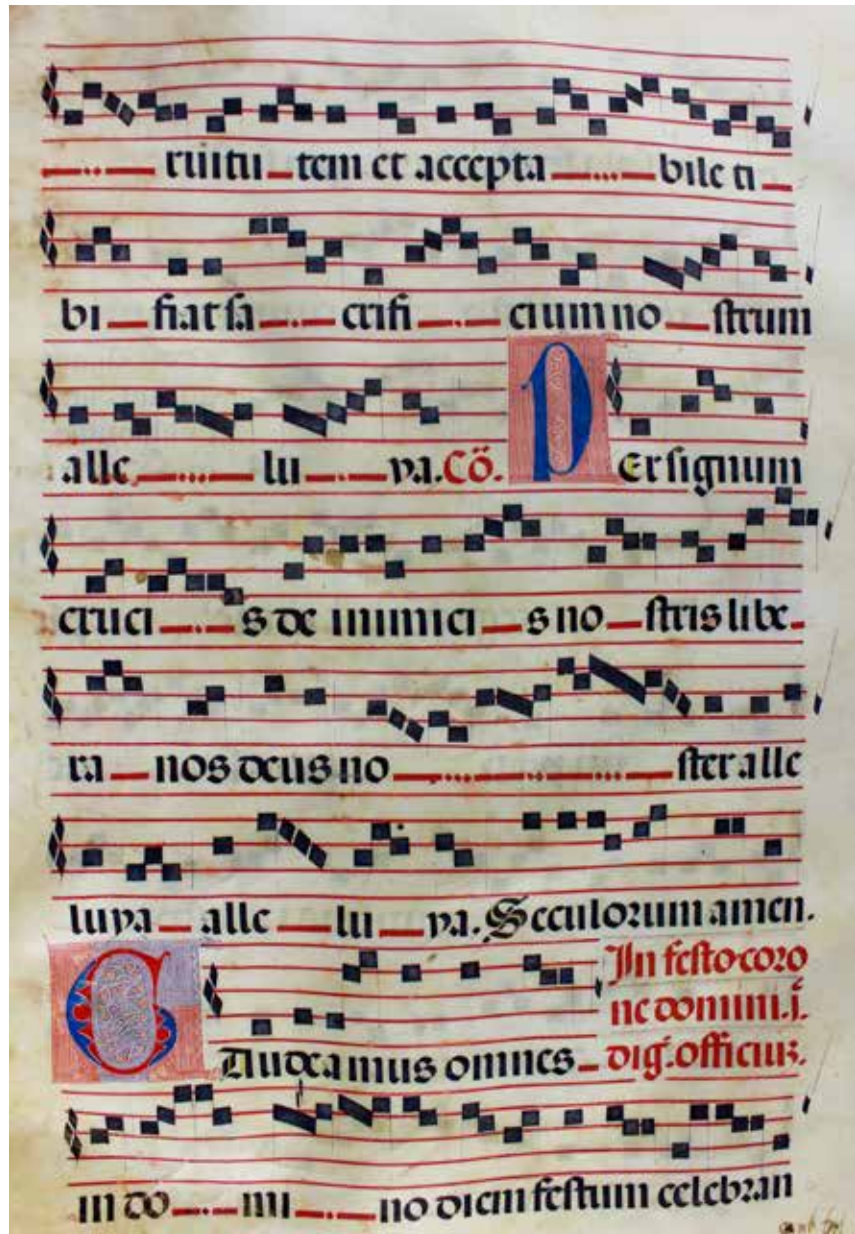 ruitu tem et accepta bile ti
bi fiat sa crifi cium no strum
alle lu ya. Cō. P Er signum
cruci s de inimici s no stris libe
ra nos deus no ster alle
luya alle lu ya. Seculorum amen.
G Audeamus omnes In festo coro
ne domini. j.
dig. officiuz.
in do mi no diem festum celebran